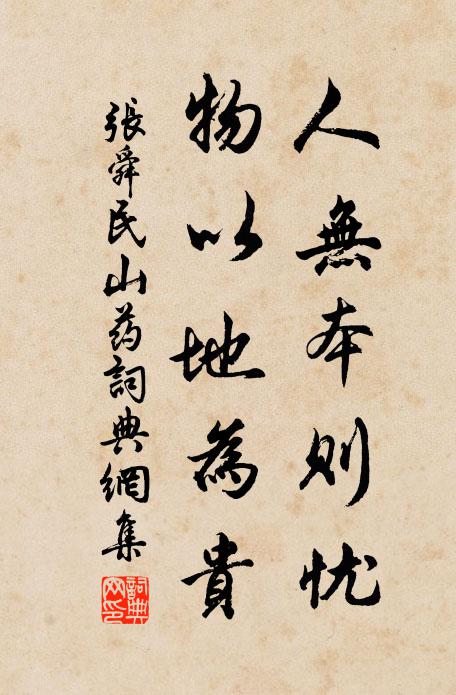 人無本則忧
物以地為貴
張舜民山药詞典網集
詞典网印